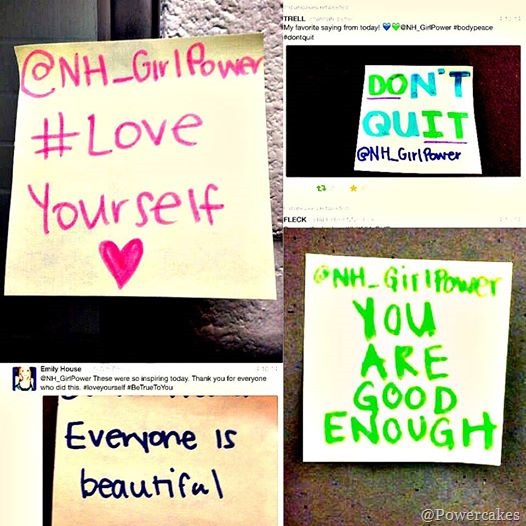 @NH_GirlPower
#Love
Yourself
TRELL
My favorite saying from today! 💙💚@NH_GirlPower #bodypeace
#dontquit
DON'T
QUIT
@NH_GirlPower
FLECK
@NH_GirlPower
YOU
ARE
GOOD
ENOUGH
Emily House
@NH_GirlPower These were so inspiring today. Thank you for everyone
who did this. #loveyourself #BeTrueToYou
Everyone is
beautiful
@Powercakes